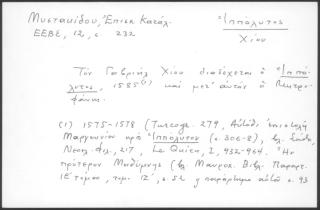 Μυστακίδου, Ἐπισκ. Κατάλ.
ΕΕΒΣ, 12, σ. 232
Ἱππόλυτος
Χίου
Τὸν Γαβριὴλ Χίου διαδέχεται ὁ Ἱππό-
λυτος, 1585(1) καὶ μετ' αὐτὸν ὁ
φάνης.
(1) 1575-1578 (Turcogr. 279,
Μαργουνίου πρὸ Ἱππόλυτον (σ. 306-8), βλ. Σάθα,
Νεοελ. φιλ., 217, Le Quien, I, 932-964. Ἦν
πρότερον Μηθύμνης (βλ. Μαυροκ. Βιβλ. Παραρτ.
ΙΕ' τόμου, τομ. ΙΖ', σ. 52 παράρτημα αὐτοῦ σ. 93